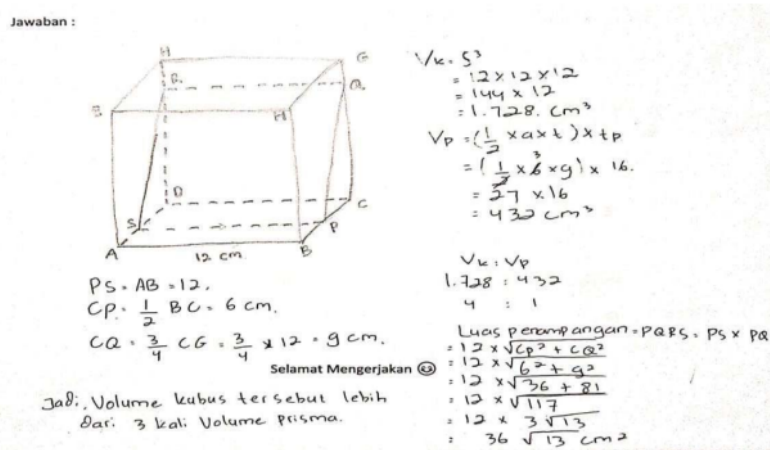 Jawaban :
H
G
R
Q
E
F
D
C
S
P
A
12 cm
B
PS = AB = 12.
CP = 1/2 BC = 6 cm.
CQ = 3/4 CG = 3/4 x 12 = 9 cm.
Selamat Mengerjakan ☺
Jadi, Volume kubus tersebut lebih
dari 3 kali Volume prisma.
Vk = S³
= 12 x 12 x 12
= 144 x 12
= 1.728. cm³
Vp = (1/2 x a x t) x tp
= (1/2 x 6 x 9) x 16.
3
= 27 x 16
= 432 cm³
Vk : Vp
1.728 : 432
4 : 1
Luas penampangan = PQRS = PS x PQ
= 12 x √CP² + CQ²
= 12 x √6² + 9²
= 12 x √36 + 81
= 12 x √117
= 12 x 3√13
= 36 √13 cm2